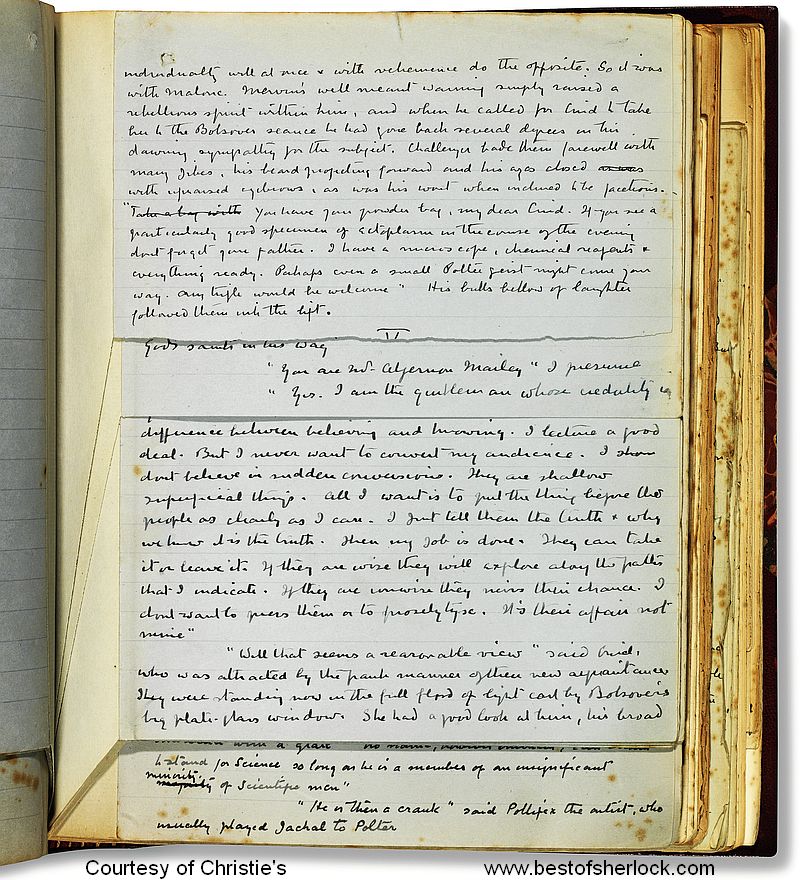 individuality will at once & with vehemence do the opposite. So it was
with Malone. Mervin's well meant warning simply raised a
rebellious spirit within him, and when he called for Enid to take
her to the Bolsover seance he had gone back several degrees in his
dawning sympathy for the subject. Challenger bade them farewell with
many jibes, his beard projecting forward and his eyes closed
with upraised eyebrows, as was his wont when inclined to be facetious.
"Take a bag with You have your powder bag, my dear Enid. If you see a
particularly good specimen of ectoplasm in the course of the evening
dont forget your father. I have a microscope, chemical reagents &
everything ready. Perhaps even a small Polter geist might come your
way. Any trifle would be welcome" His bulls bellow of laughter
followed them into the lift.
V
Gods saints in his way
"You are Mr. Algernon Mailey" I presume
"Yes. I am the gentleman whose credulity is
difference between believing and knowing. I lecture a good
deal. But I never want to convert my audience. I
dont believe in sudden conversions. They are shallow
superficial things. All I want is to put the thing before the
people as clearly as I can. I just tell them the truth & why
we know it is the truth. Then my job is done. They can take
it or leave it. If they are wise they will explore along the paths
that I indicate. If they are unwise they miss their chance. I
dont want to press them or to proselytyse. It's their affair not
mine"
"Well that seems a reasonable view" said Enid,
who was attracted by the frank manner of their new acquaintance
They were standing now in the full flood of light cast by Bolsover's
big plate-glass window. She had a good look at him, his broad
with a
to stand for Science so long as he is a member of an insignificant
minority
majority of Scientific men"
"He is then a crank" said Pollifex the artist, who
usually played Jackal to Polter
Courtesy of Christie's
www.bestofsherlock.com